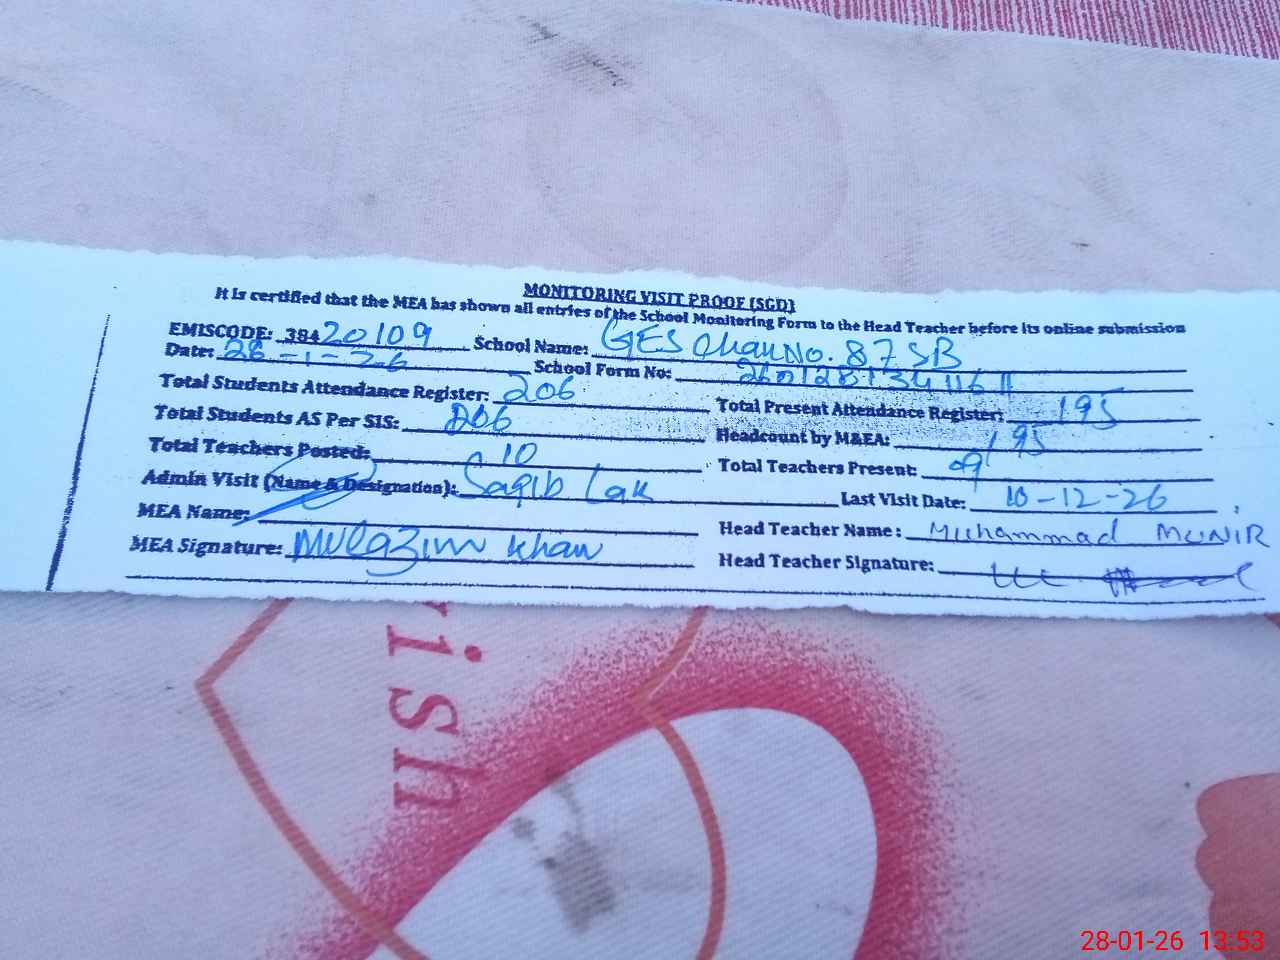 MONITORING VISIT PROOF (SGD)
It is certified that the MEA has shown all entries of the School Monitoring Form to the Head Teacher before its online submission
EMISCODE: 38420109 School Name: GES Chak No. 87 SB
Date: 28-1-26 School Form No: 260128134116
Total Students Attendance Register: 206 Total Present Attendance Register: 195
Total Students AS Per SIS: 206 Headcount by M&EA: 195
Total Teachers Posted: 10 Total Teachers Present: 09
Admin Visit (Name & Designation): Saqib Lak Last Visit Date: 10-12-26
MEA Name: Head Teacher Name: Muhammad MUNIR
MEA Signature: Mulazim Khan Head Teacher Signature:
rish
28-01-26 13:53